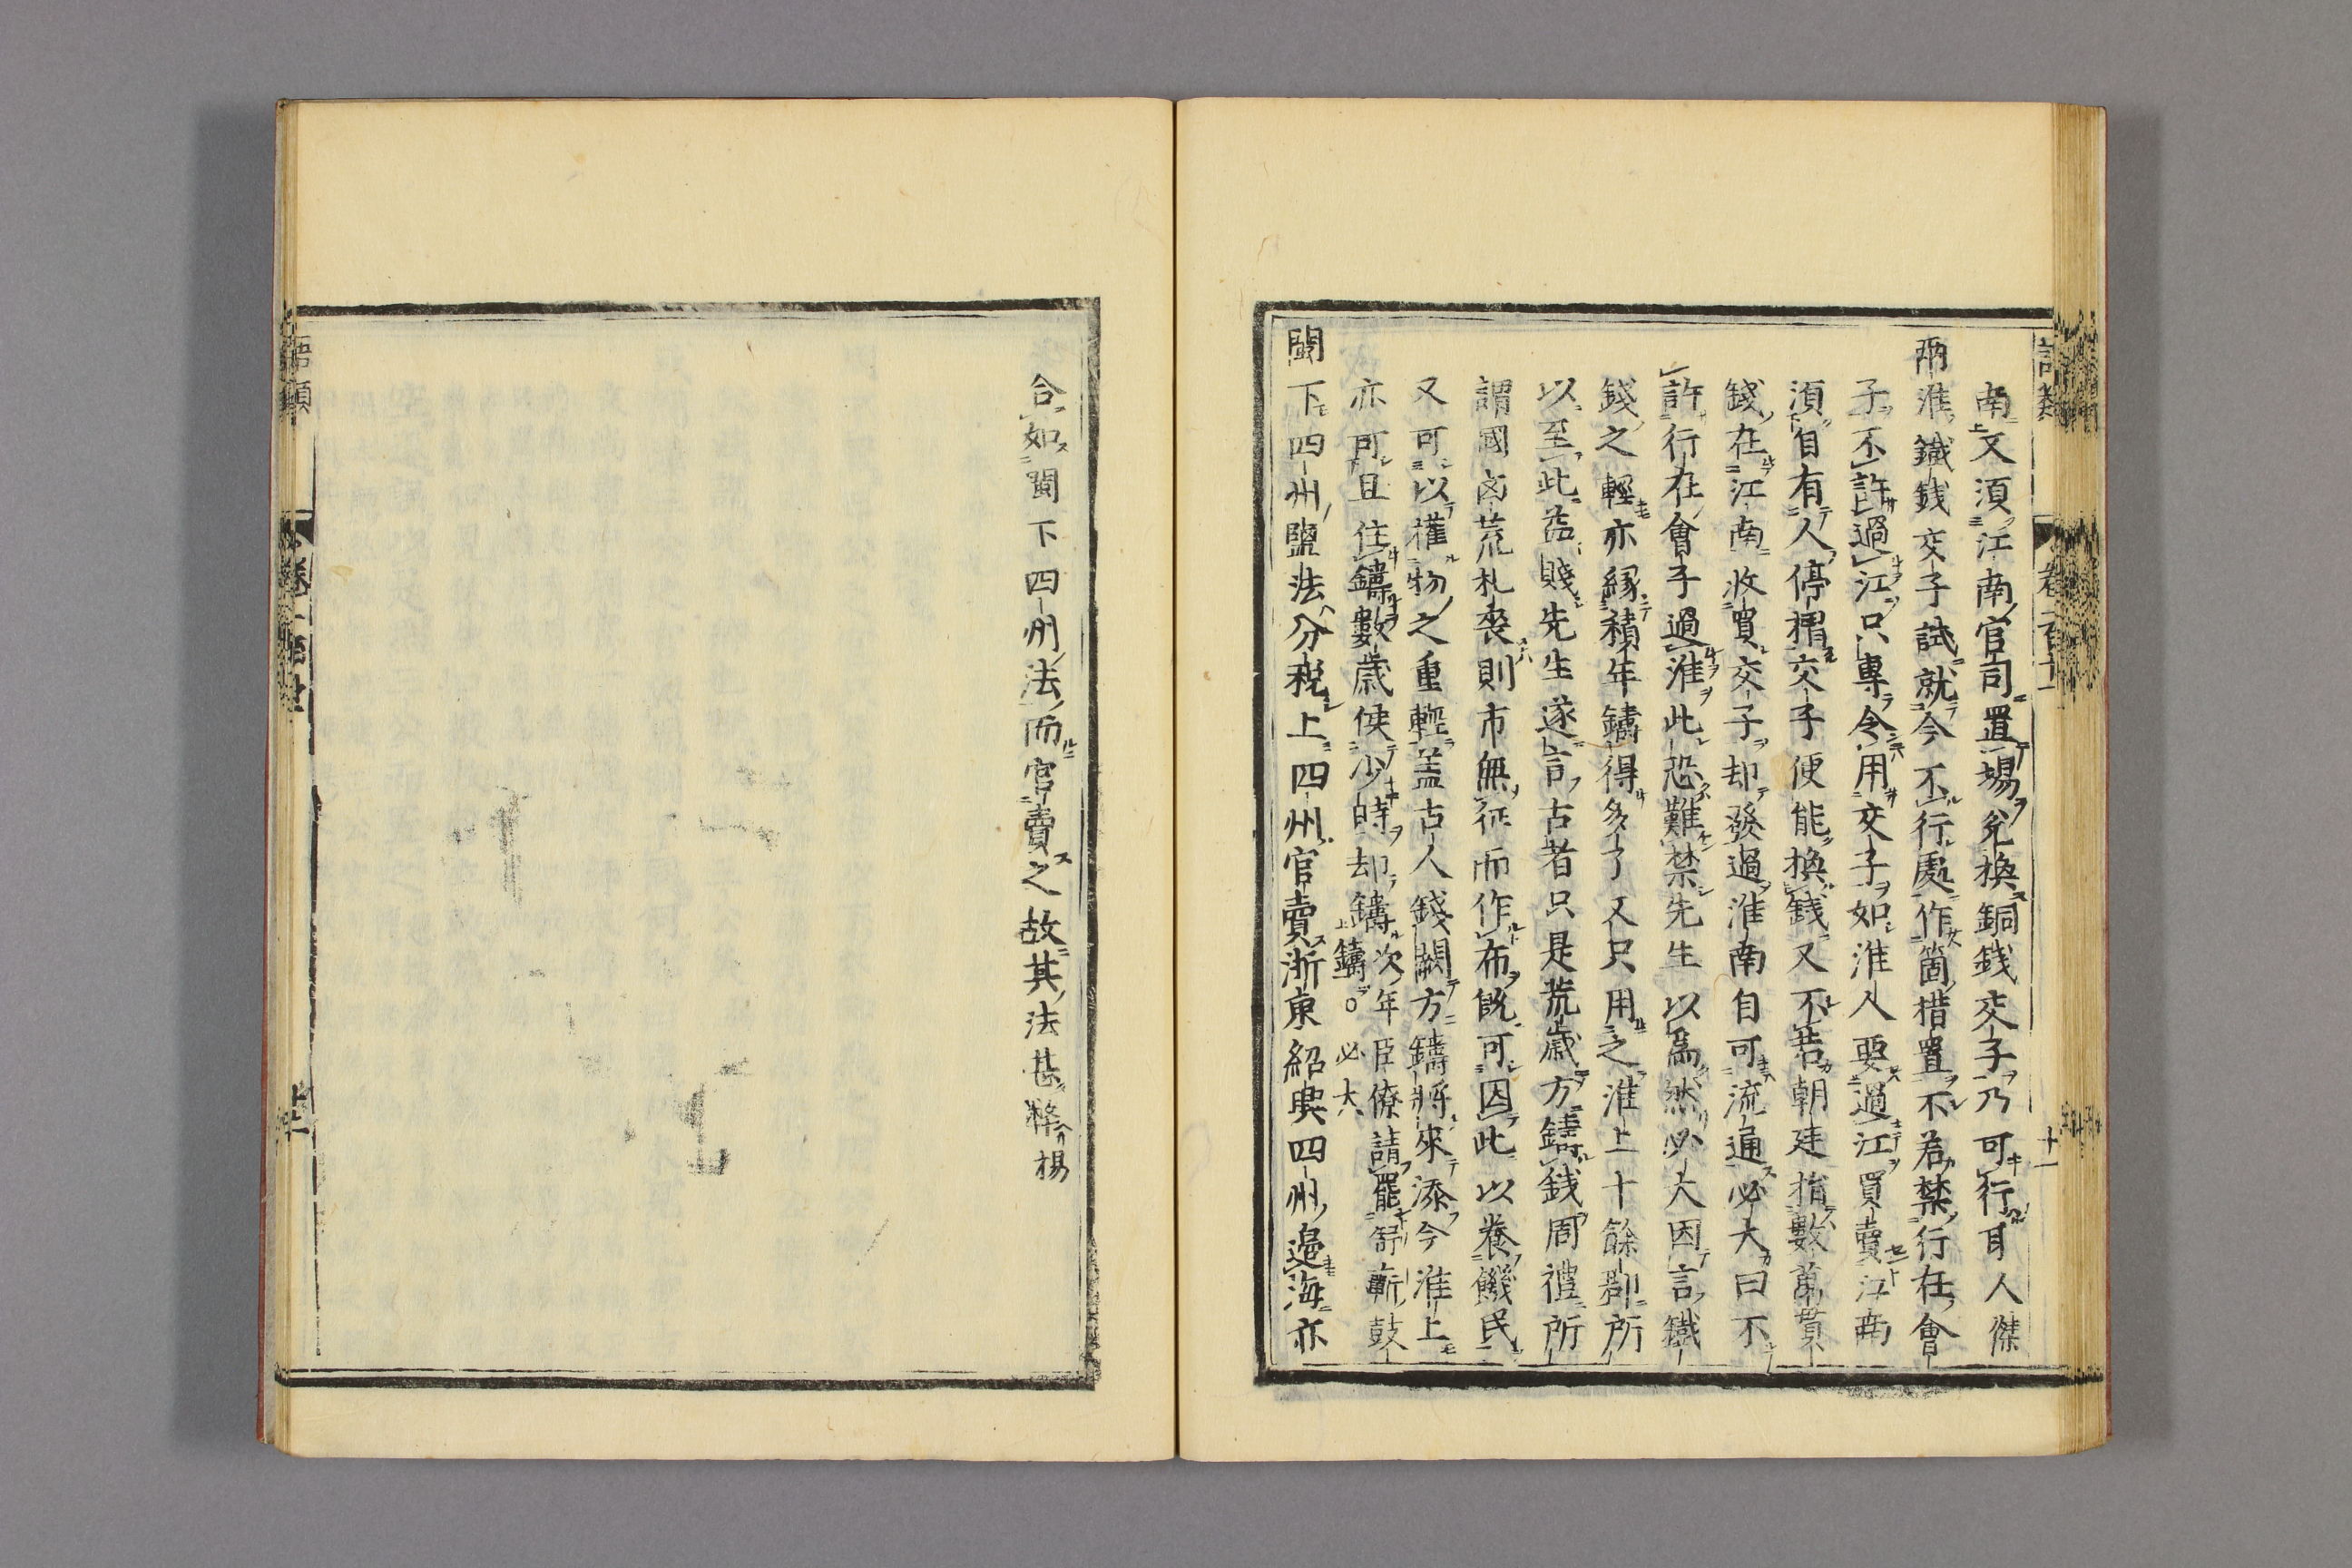 語類 卷一百十一 十一
南又須江南官司置場兌換銅錢交子乃可行耳人傑
兩淮鐵錢交子試就今不行處作箇措置不若禁行在會
子不許過江只專令用交子如淮人要過江買賣江南
須自有人停榻交子便能換錢又不若朝廷捐數萬貫
錢在江南收買交子却發過淮南自可流通必大曰不
許行在會子過淮此恐難禁先生以爲然必大因言鐵
錢之輕亦緣積年鑄得多了又只用之淮上十餘郡所
以至此益賤先生遂言古者只是荒歲方鑄錢周禮所
謂國凶荒札喪則市無征而作布既可因此以養饑民
又可以權物之重輕盖古人錢闕方鑄將來添今淮上
亦可且住鑄數歲使少時却鑄次年臣僚請罷舒蘄鼓
鑄○必大
閩下四州鹽法分稅上四州官賣浙東紹興四州邊海亦
合如閩下四州法而官賣之故其法甚𡚁揚
語類 卷一百十一